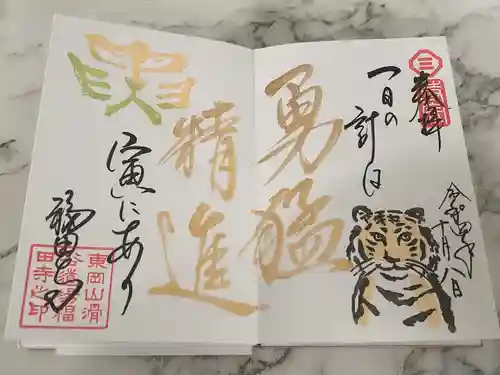 奉拝
一日の計は
令和四年十月八日
勇猛
精進
寅にあり
福田寺
東岡山滑
谷道場福
田寺之印